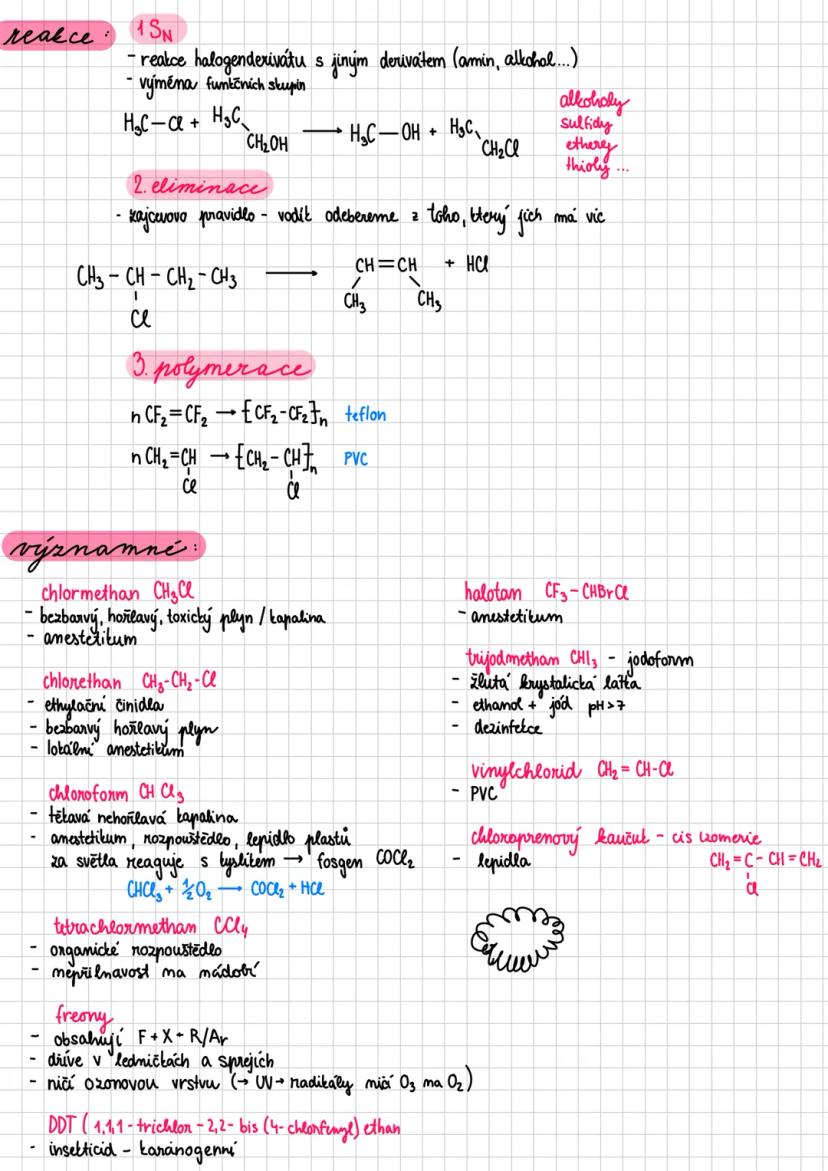 reakce:
1 SN
- reakce halogenderivátu s jiným derivátem (amin, alkohol...)
- výměna funkčních skupin
H₃C-Cl + H₃C-CH₂OH → H₃C-OH + H₃C-CH₂Cl
alkoholy
sulfidy
ethery
thioly ...
2. eliminace
- zajcevovo pravidlo - vodík odebereme z toho, který jich má víc
CH₃ - CH - CH₂ - CH₃ → CH=CH + HCl
Cl
CH₃ CH₃
3. polymerace
n CF₂=CF₂ → [CF₂-CF₂]n teflon
n CH₂=CH → [CH₂-CH]n PVC
Cl Cl
významné:
chlormethan CH₃Cl
- bezbarvý, hořlavý, toxický plyn / kapalina
- anestetikum
chlorethan CH₃-CH₂-Cl
- ethylační činidla
- bezbarvý hořlavý plyn
- lokální anestetikum
chloroform CHCl₃
- těkavá nehořlavá kapalina
- anestetikum, rozpouštědlo, lepidlo plastů
za světla reaguje s kyslíkem → fosgen COCl₂
CHCl₃ + ½O₂ → COCl₂ + HCl
tetrachlormethan CCl₄
- organické rozpouštědlo
- nepřilnavost na nádobí
freony
- obsahují F + X + R/Ar
- dříve v ledničkách a sprejích
- ničí ozonovou vrstvu (→ UV → radikály ničí O₃ na O₂)
DDT (1,1,1-trichlor-2,2-bis (4-chlorfenyl) ethan
- insekticid - karcinogenní
halotan CF₃-CHBrCl
- anestetikum
trijodmethan CHI₃ - jodoform
- žlutá krystalická látka
- ethanol + jód pH>7
- dezinfekce
vinylchlorid CH₂=CH-Cl
- PVC
chloroprenový kaučuk - cis izomerie
- lepidla CH₂=C-CH=CH₂
Cl